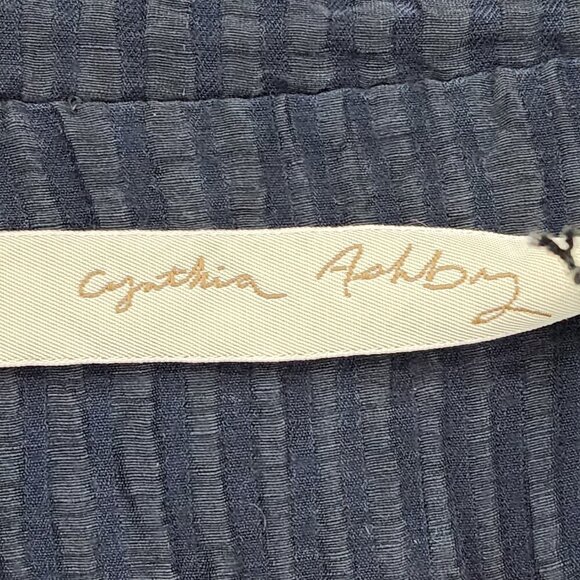 Cynthia Ashby